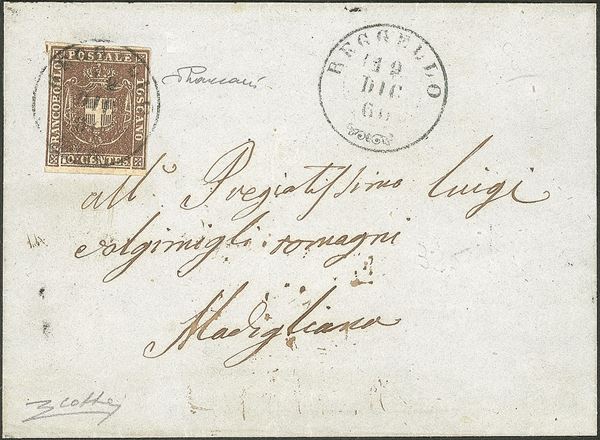 FRANCOBOLLO
POSTALE
TOSCANO
10 CENTES
REGGELLO
19
DIC
60
all' Pregiatissimo Luigi
Algimigli Romagni
Modigliana